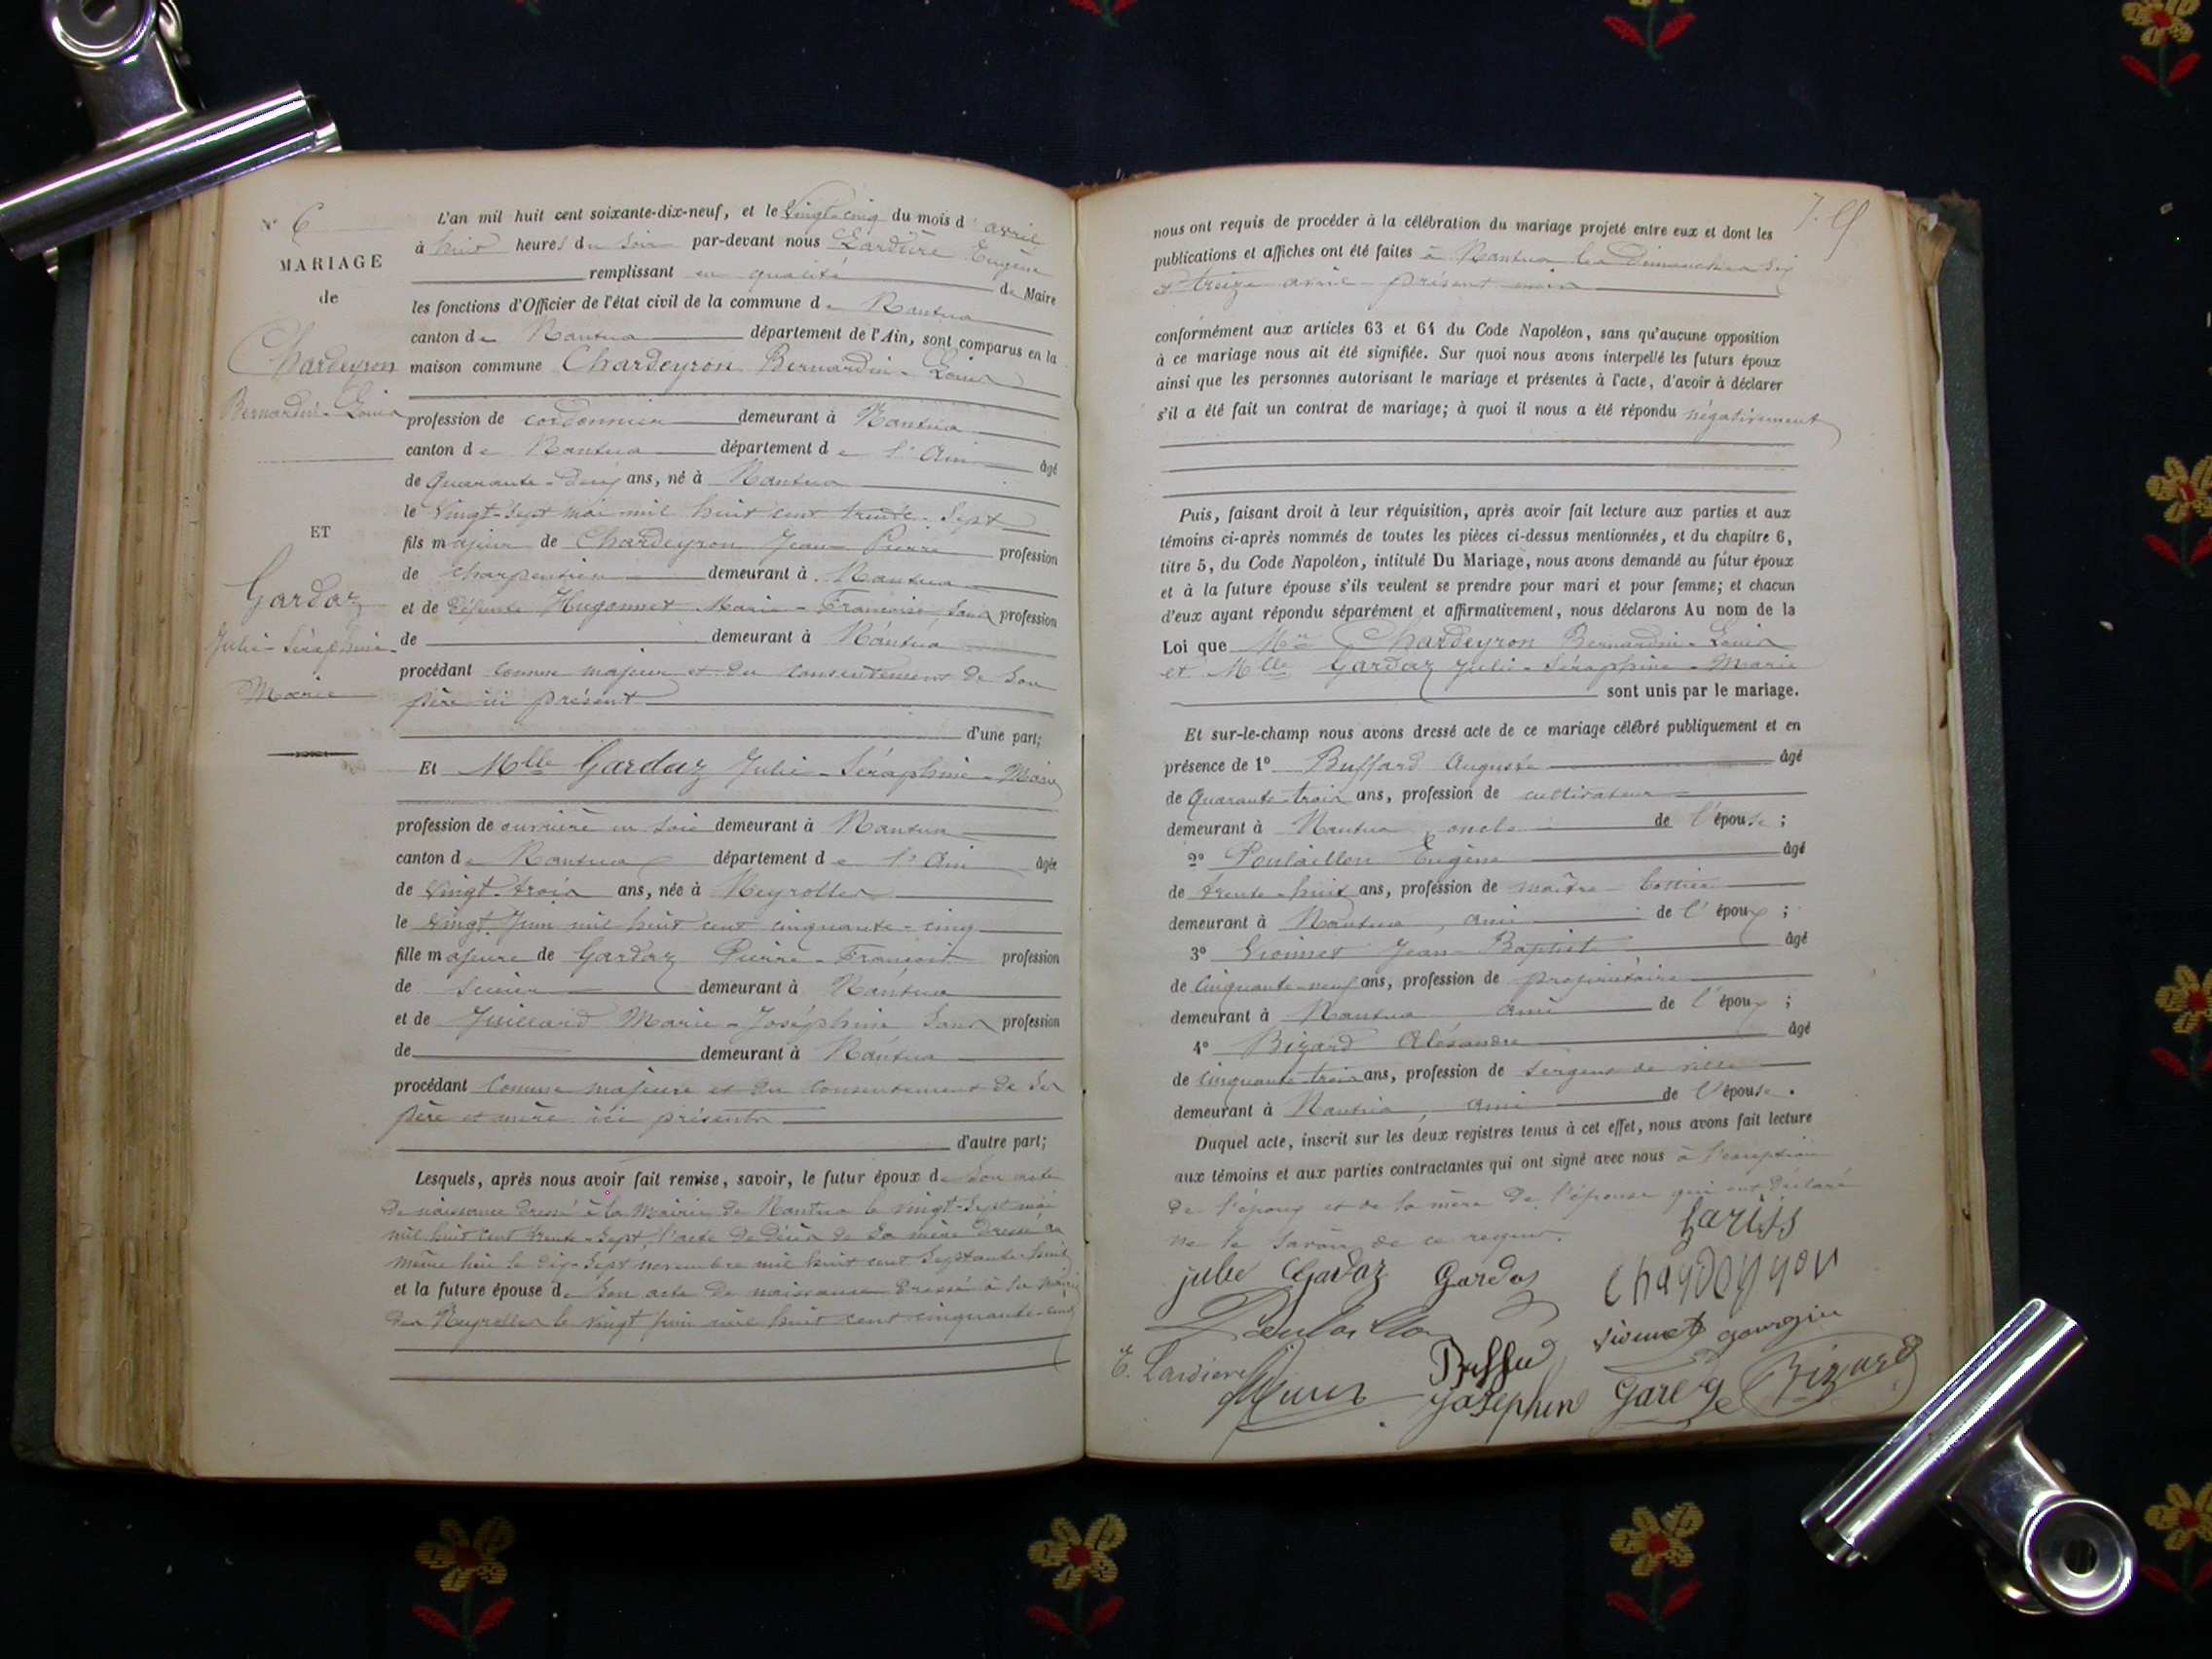 N° 6
MARIAGE
de
Chardeyron
Bernardin-Louis
ET
Gardaz
Julie-Séraphine-
Marie
L'an mil huit cent soixante-dix-neuf, et le vingt-cinq du mois d'avril
à huit heures du soir par-devant nous Lardière Eugène
remplissant en qualité de Maire
les fonctions d'Officier de l'état civil de la commune de Nantua
canton de Nantua département de l'Ain, sont comparus en la
maison commune Chardeyron Bernardin-Louis
profession de cordonnier demeurant à Nantua
canton de Nantua département de l'Ain âgé
de Quarante-deux ans, né à Nantua
le vingt-sept mai mil huit cent trente-sept
fils majeur de Chardeyron Jean Pierre profession
de charpentier demeurant à Nantua
et de défunte Hugonnet Marie-Françoise, sans profession
de demeurant à Nantua
procédant comme majeur et du consentement de son
père ici présent
d'une part;
Et Mlle Gardaz Julie-Séraphine-Marie
profession de ouvrière en soie demeurant à Nantua
canton de Nantua département de l'Ain âgée
de vingt-trois ans, née à Neyrolles
le vingt Juin mil huit cent cinquante-cinq
fille majeure de Gardaz Pierre-François profession
de scieur demeurant à Nantua
et de Juillard Marie-Joséphine sans profession
de demeurant à Nantua
procédant comme majeure et du consentement de ses
père et mère ici présents
d'autre part;
Lesquels, après nous avoir fait remise, savoir, le futur époux de son acte
de naissance dressé à la Mairie de Nantua le vingt-sept mai
mil huit cent trente-sept, l'acte de décès de sa mère dressé au
même lieu le dix-sept novembre mil huit cent septante-huit
et la future épouse de son acte de naissance dressé à la Mairie
des Neyrolles le vingt juin mil huit cent cinquante-cinq
nous ont requis de procéder à la célébration du mariage projeté entre eux et dont les
publications et affiches ont été faites à Nantua les Dimanches six
et treize avril présent mois
conformément aux articles 63 et 64 du Code Napoléon, sans qu'aucune opposition
à ce mariage nous ait été signifiée. Sur quoi nous avons interpellé les futurs époux
ainsi que les personnes autorisant le mariage et présentes à l'acte, d'avoir à déclarer
s'il a été fait un contrat de mariage; à quoi il nous a été répondu négativement
Puis, faisant droit à leur réquisition, après avoir fait lecture aux parties et aux
témoins ci-après nommés de toutes les pièces ci-dessus mentionnées, et du chapitre 6,
titre 5, du Code Napoléon, intitulé Du Mariage, nous avons demandé au futur époux
et à la future épouse s'ils veulent se prendre pour mari et pour femme; et chacun
d'eux ayant répondu séparément et affirmativement, nous déclarons Au nom de la
Loi que Mr Chardeyron Bernardin-Louis
et Mlle Gardaz Julie-Séraphine-Marie
sont unis par le mariage.
Et sur-le-champ nous avons dressé acte de ce mariage célébré publiquement et en
présence de 1° Buffard Auguste âgé
de Quarante-trois ans, profession de cultivateur
demeurant à Nantua, oncle de l'épouse;
2° Poulaillon Eugène âgé
de trente-huit ans, profession de maître bottier
demeurant à Nantua, ami de l'époux;
3° Vionnet Jean-Baptiste âgé
de cinquante-neuf ans, profession de propriétaire
demeurant à Nantua ami de l'époux;
4° Bizard Aléxandre âgé
de cinquante-trois ans, profession de sergent de ville
demeurant à Nantua, ami de l'épouse.
Duquel acte, inscrit sur les deux registres tenus à cet effet, nous avons fait lecture
aux témoins et aux parties contractantes qui ont signé avec nous à l'exception
de l'époux et de la mère de l'épouse qui ont déclaré
ne le savoir de ce requis.
julie Gardaz Gardaz
Chardeyron
Poulaillon
vionnet
E. Lardière
Buffard
Bizard
Josephine